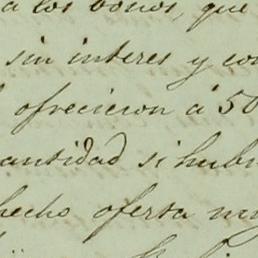 a los bonos, que
sin interes y con
ofrecieron á 50
antidad si hubi
hecho oferta